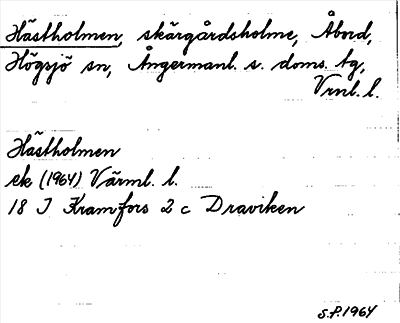 Hästholmen, skärgårdsholme, Åbord,
Högsjö sn, Ångermanl. s. doms. tg,
Vrnl. l.
Hästholmen
ek (1964) Värml. l.
18 I Kramfors 2 c Draviken
S.P. 1964